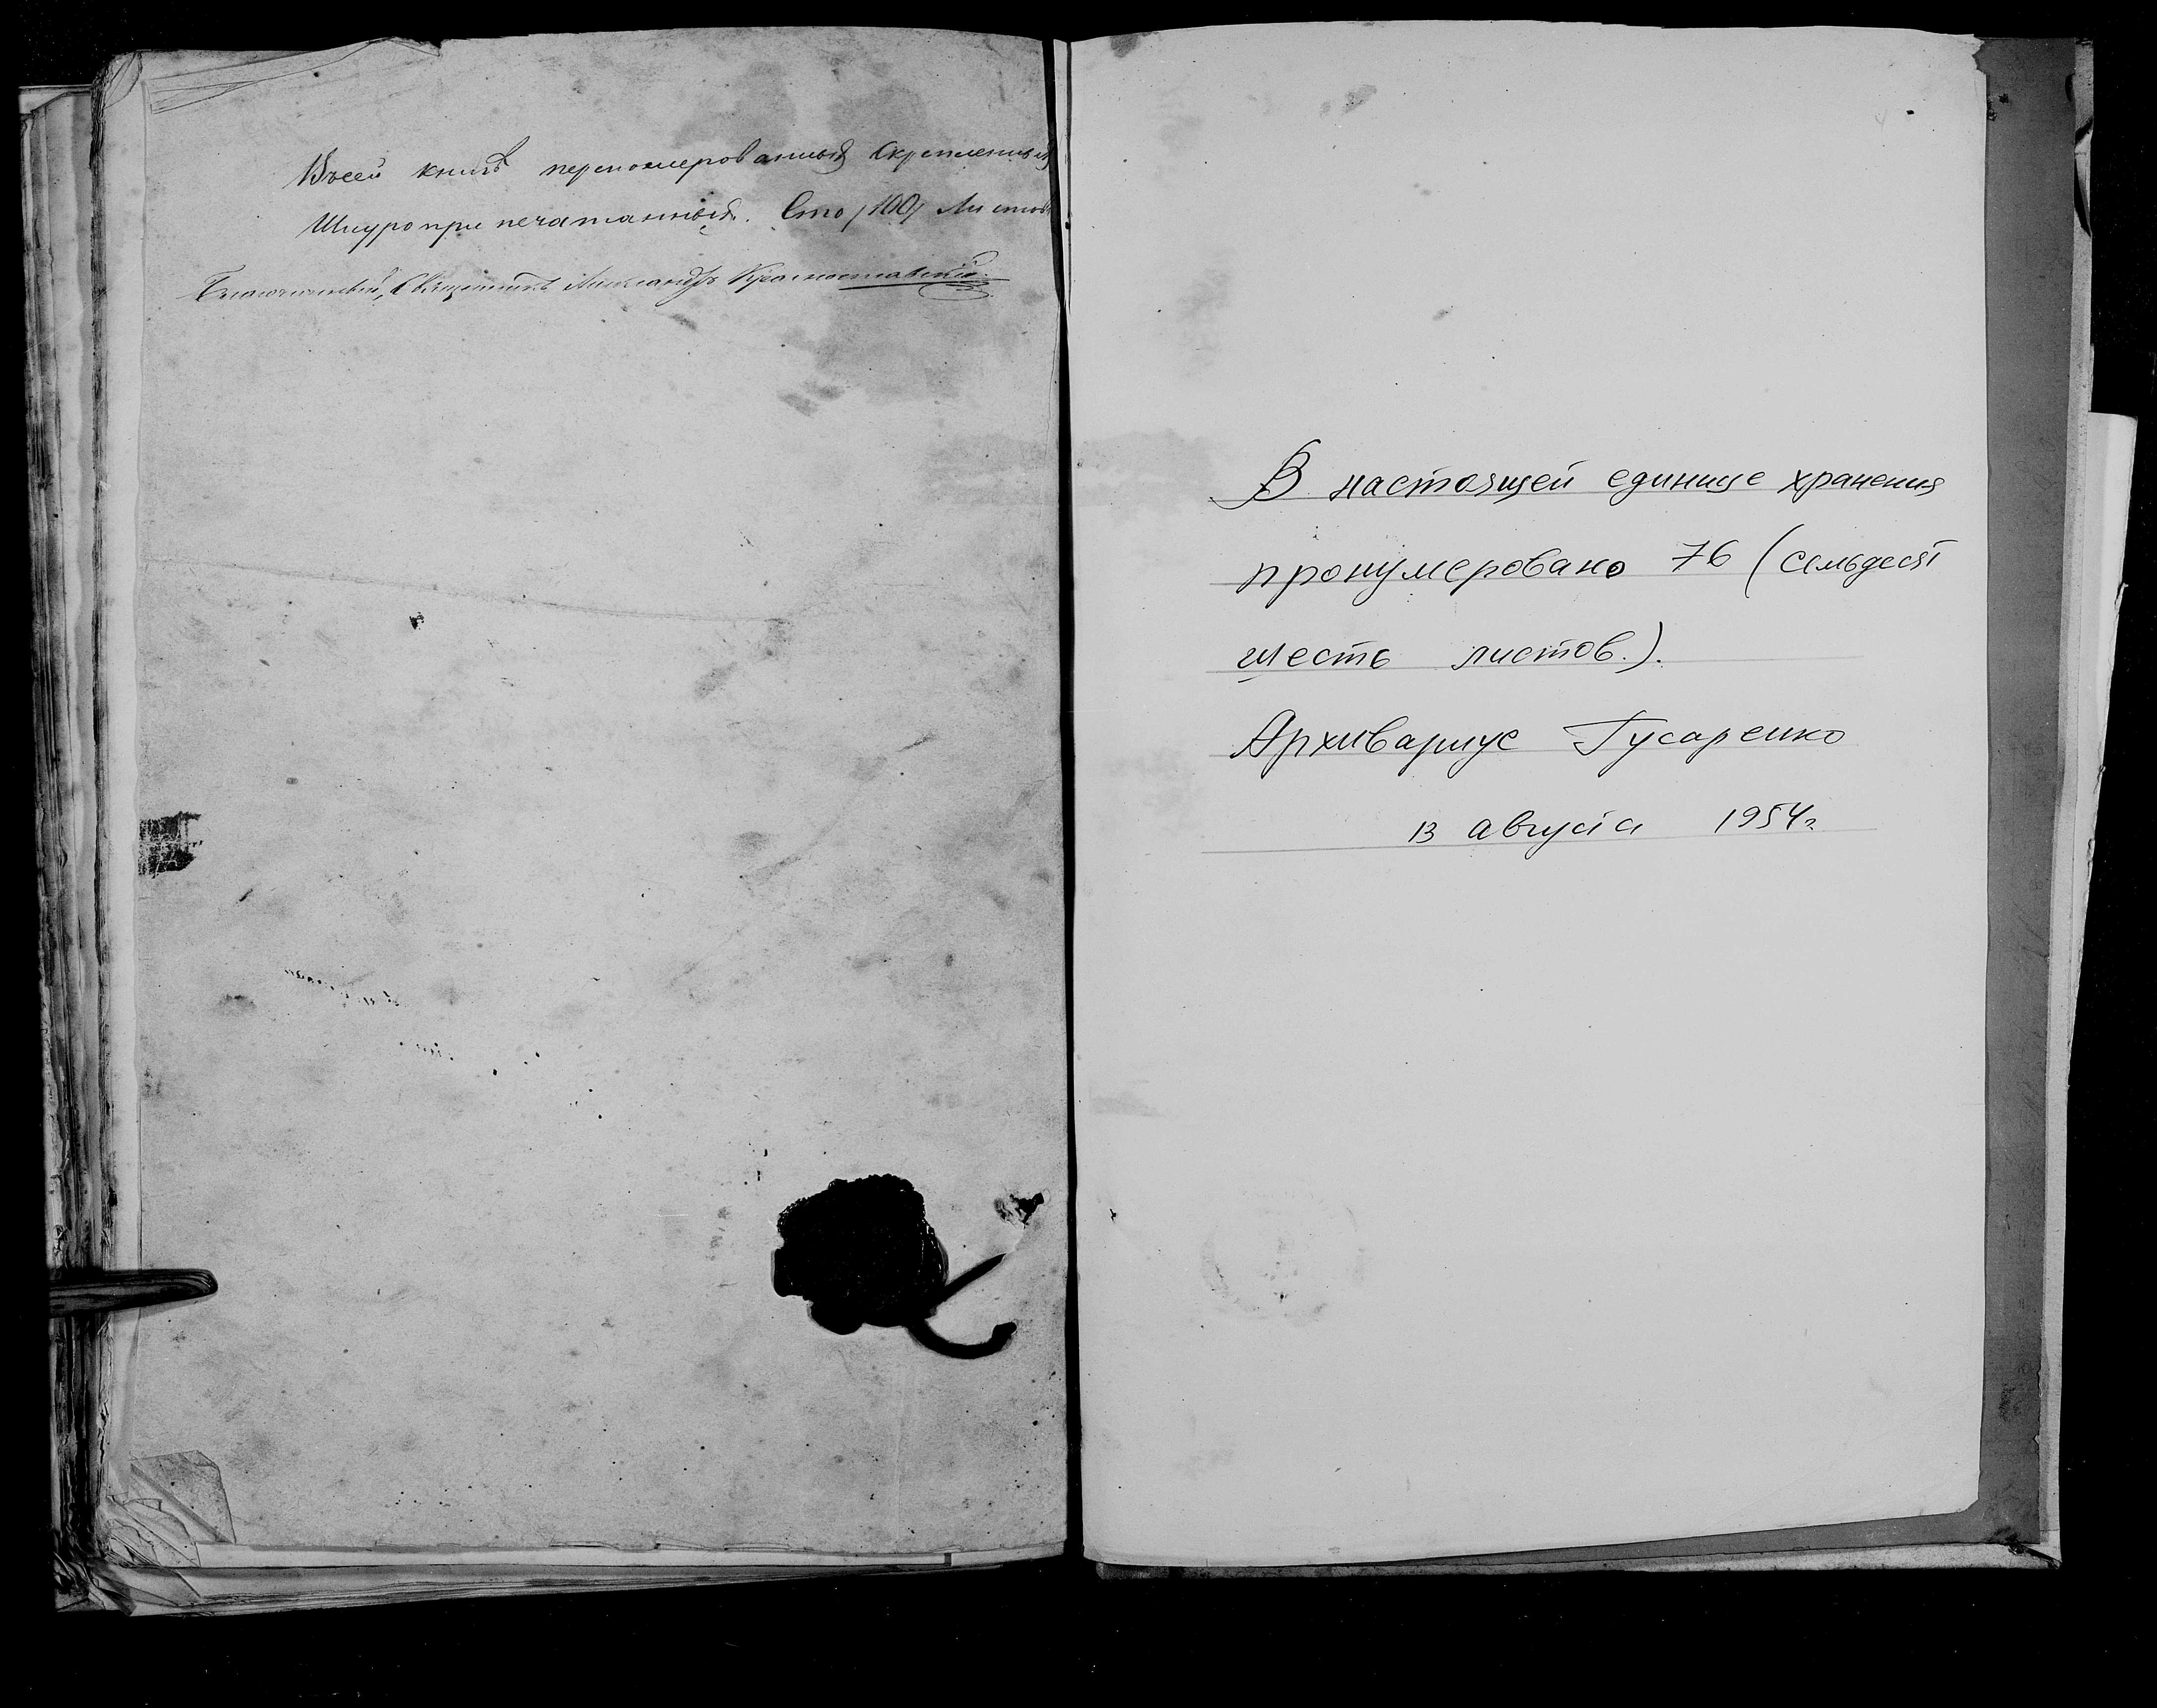 Въ сей книгѣ перенумерованныхъ скрепленныхъ
Шнуро при печатанныхъ. Сто /100/ Листовъ
Благочинный, Священникъ Александръ Красноставскій.
В настоящей единице хранения
пронумеровано 76 (семьдесят
шесть листов.).
Архивариус Гусаренко
13 августа 1954г.